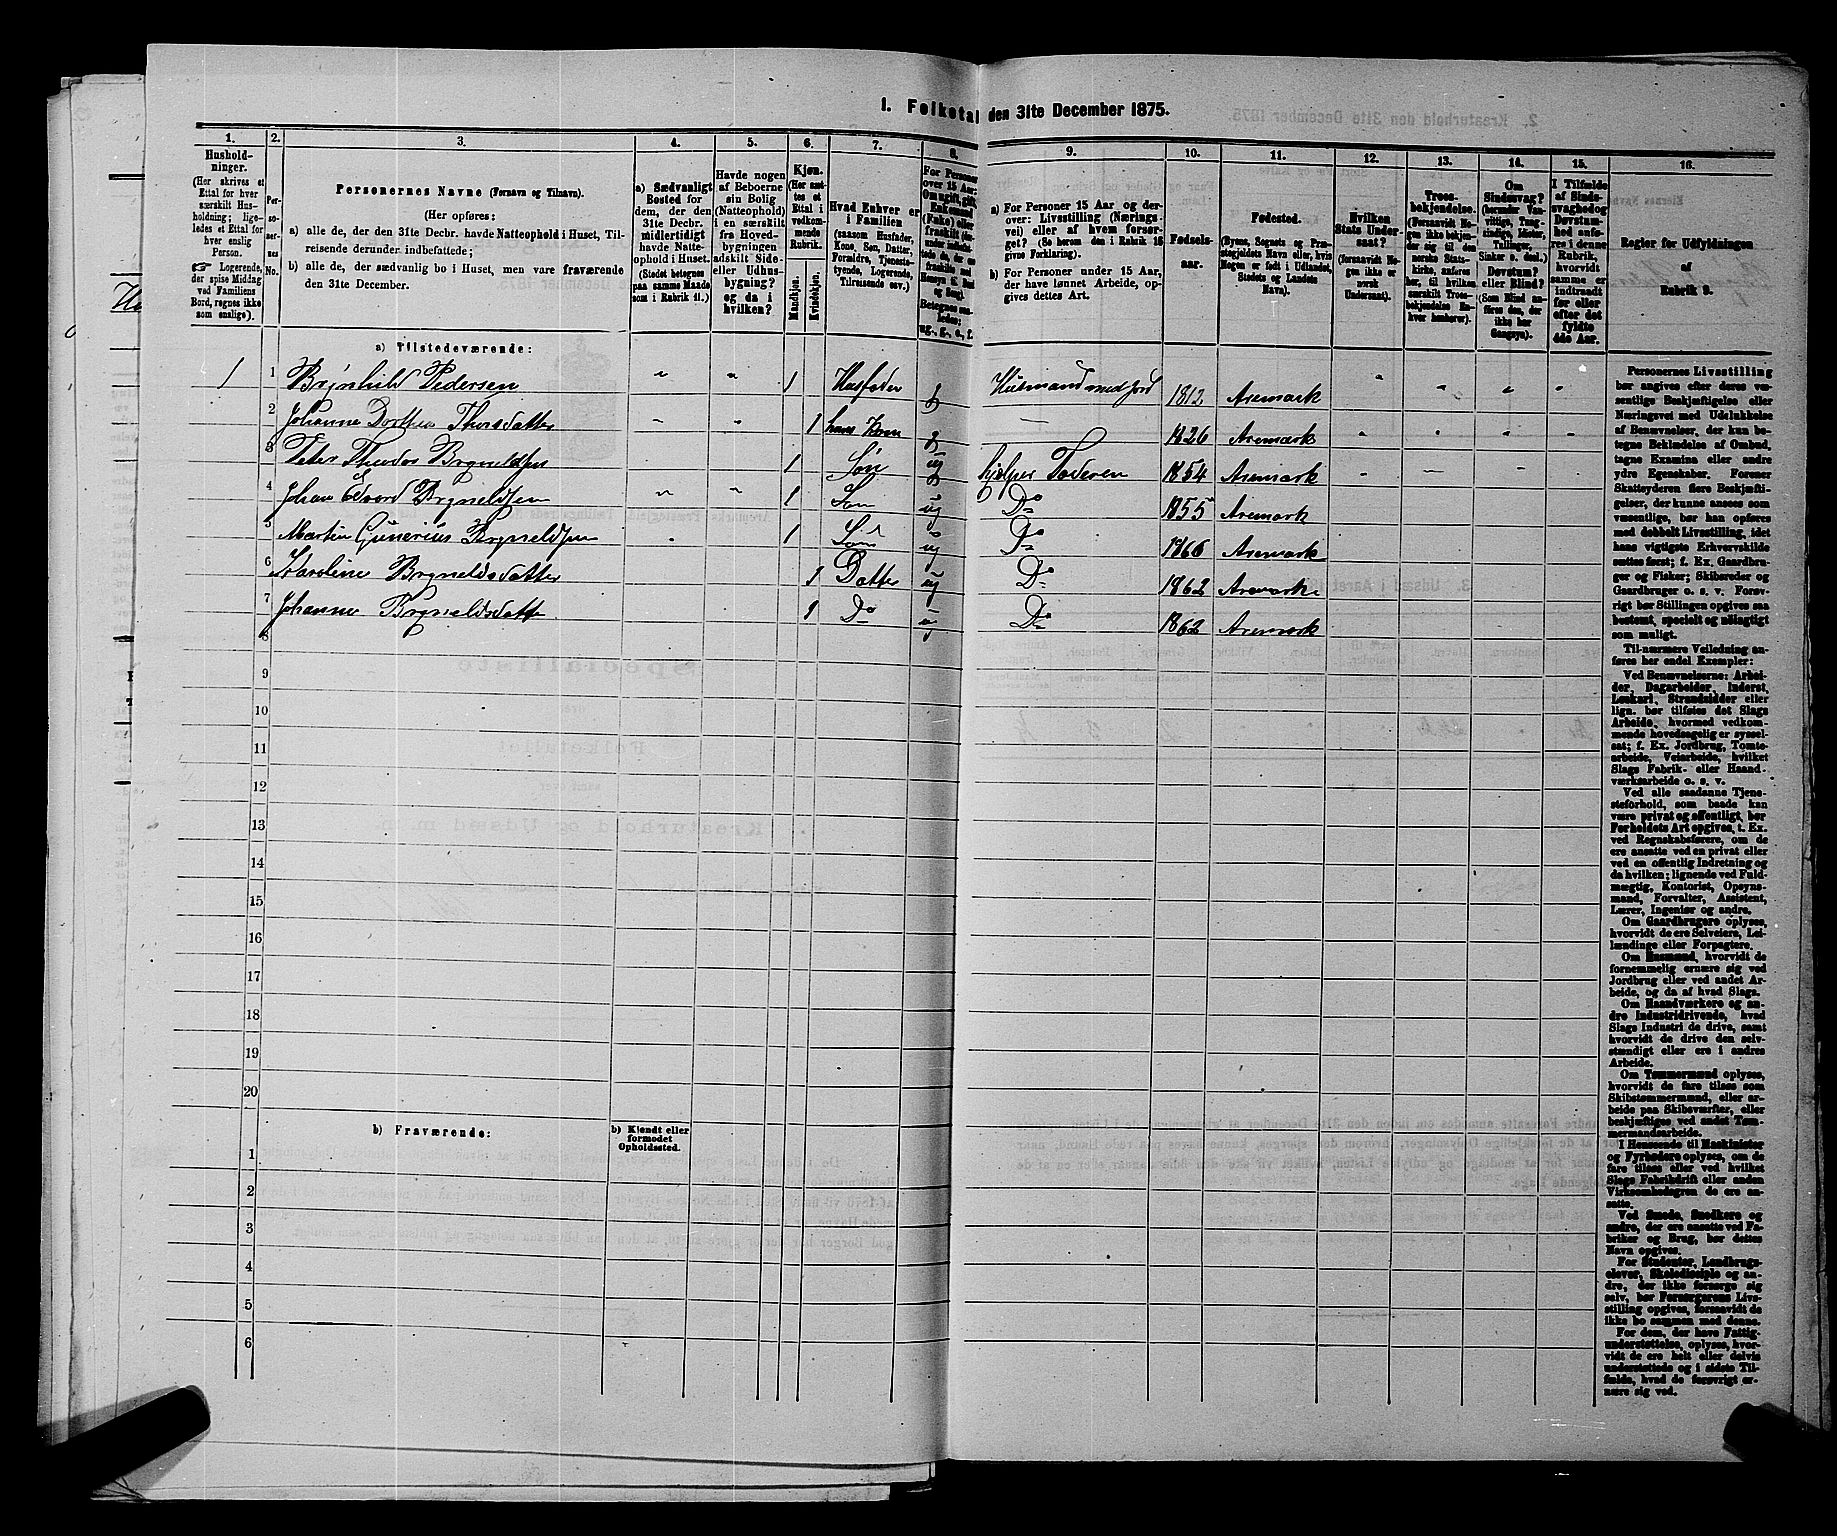 1. Folketal den 31te December 1875.
1. 2. 3. 4. 5. 6. 7. 8. 9. 10. 11. 12. 13. 14. 15. 16.
Husholdninger.
(Her skrives et
Ettal for hver
særskilt Husholdning;
ligeledes et Ettal for
hver enslig
Person.
Logerende,
der spise Middag
ved Familiens
Bord, regnes ikke
som enslige).
Personernes No.
Personernes Navne (Fornavn og Tilnavn).
(Her opføres:
a) alle de, der den 31te Decbr. havde Natteophold i Huset, Tilreisende derunder indbefattede;
b) alle de, der sædvanlig bo i Huset, men vare fraværende
den 31te December.
a) Sædvanligt
Bosted for
dem, der den
31te Decbr.
midlertidigt
havde Natteophold
i Huset.
(Stedet betegnes
paa samme Maade
som i Rubrik 11.)
Havde nogen
af Beboerne
sin Bolig
(Natteophold)
i en særskilt
fra Hovedbygningen
adskilt Side-
eller Udhusbygning?
og da i
hvilken?
Kjøn.
(Her sættes et
Ettal i
vedkommende
Rubrik.
Mandkjøn.
Kvindekjøn.
Hvad Enhver er
i Familien
(saasom Husfader,
Kone, Søn, Datter,
Forældre, Tjenestetyende,
Logerende,
Tilreisende osv.)
a) For Personer 15 Aar og derover:
Livsstilling (Næringsvei)
eller af hvem forsørget?
(Se herom den i Rubrik 16
givne Forklaring).
b) For Personer under 15 Aar,
der have lønnet Arbeide, opgives
dettes Art.
Fødselsaar.
Fødested.
(Byens, Sognets og Præstegjeldets
Navn eller, hvis
Nogen er født i Udlandet,
Stedets og Landets
Navn).
Hvilken
Stats Undersaat?
(forsaavidt Nogen
ikke er
norsk
Undersaat).
Troesbekjendelse.
(Forsaavidt Nogen
ikke bekjender
sig til den
norske Statskirke,
anføres
her, til hvilken
særskilt Troesbekjendelse
Enhver henhører).
Om
Sindssvag?
(herunder Vanvittige,
Tungsindige, Idioter,
Tullinger,
Sinker o. desl.)
Døvstum?
eller Blind?
(Som Blind anføres
den, der
ikke har
Gangsyn).
I Tilfælde
af Sindssvaghed og
Døvstumhed
anføres
i denne
Rubrik,
hvorvidt
samme er
indtraadt
før eller
efter det
fyldte
4de Aar.
Regler for Udfyldningen
af
Rubrik 9.
a) Tilstedeværende:
1 1 Brynhild Pedersen " " 1 Husfader g Husmand med Jord 1812 Aremark " " " "
2 Johanne Dorthea Thorsdatter " " 1 hans Kone g — 1826 Aremark " " " "
3 Peter Theodor Bryneldsen 1 Søn ug hjelper Faderen 1854 Aremark
4 Johan Edvard Brynildsen " " 1 Søn ug Do 1855 Aremark
5 Martin Gunerius Bryneldsen " 1 Søn ug Do 1866 Aremark
6 Karoline Bryneldsdatter 1 Datter ug Do 1862 Aremark
7 Johanne Bryneldsdatt 1 Do ug Do 1862 Aremark
8
9
10
11
12
13
14
15
16
17
18
19
20
b) Fraværende:
b) Kjendt eller
formodet
Opholdssted.
1
2
3
4
5
6
Personernes Livsstilling
bør angives efter deres væsentlige
Beskjæftigelse eller
Næringsvei med Udelukkelse
af Benævnelser, der kun betegne
Beklædelse af Ombud,
tagne Examina eller andre
ydre Egenskaber. Forener
Skatteyderen flere Beskjæftigelser,
der kunne ansees som
væsentlige, bør han opføres
med dobbelt Livsstilling, idet
hans vigtigste Erhvervskilde
sættes først; f. Ex. Gaardbruger
og Fisker; Skibsreder og
Gaardbruger o. s. v. Forøvrigt
bør Stillingen opgives saa
bestemt, specielt og nøiagtigt
som muligt.
Til nærmere Veiledning anføres
her endel Exempler:
Ved Benævnelserne: Arbeider,
Dagarbeider, Inderst,
Løskarl, Strandsidder eller
lign. bør tilføies det Slags
Arbeide, hvormed vedkommende
hovedsagelig er sysselsat;
f. Ex. Jordbrug, Tomtearbeide,
Veiarbeide, hvilket
Slags Fabrik- eller Haandværksarbeide
o. s. v.
Ved alle saadanne Tjenesteforhold,
som baade kan
være privat og offentligt, bør
Forholdets Art opgives, t. Ex.
ved Regnskabsførere, om de
ere ansatte ved en privat eller
ved en offentlig Indretning og
da hvilken; lignende ved Fuldmægtig,
Kontorist, Opsynsmand,
Forvalter, Assistent,
Lærer, Ingeniør og andre.
Om Gaardbrugere oplyses,
hvorvidt de ere Selveiere, Leilændinge
eller Forpagtere.
Om Husmænd, hvorvidt de
fornemmelig ernære sig ved
Jordbrug eller ved andet Arbeide,
og da af hvad Slags.
Om Haandværkere og andre
Industridrivende, hvad
Slags Industri de drive, samt
hvorvidt de drive den selvstændigt
eller ere i andres
Arbeide.
Om Tømmermænd oplyses,
hvorvidt de fare tilsøs som
Skibstømmermænd, eller arbeide
paa Skibsværfter, eller
beskjæftiges ved andet Tømmermandsarbeide.
I Henseende til Maskinister
og Fyrbødere oplyses, om de
fare tilsøs eller ved hvilket
Slags Fabrikdrift eller anden
Virksomhed de ere ansatte.
Ved Smede, Snedkere og
andre, der ere ansatte ved Fabriker
og Brug, bør dettes
Navn opgives.
For Studenter, Landbrugselever,
Skoledisciple og andre,
der ikke forsørge sig
selv, bør Forsørgerens Livsstilling
opgives, forsaavidt de
ikke bo sammen med denne.
For dem, der have Fattigunderstøttelse,
oplyses, hvorvidt
de ere helt eller delvis
understøttede og i sidste Tilfælde,
hvad de forøvrigt ernære
sig ved.